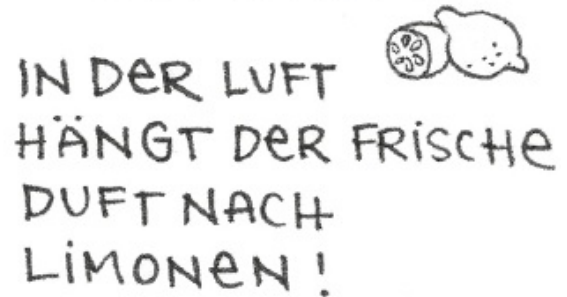 IN DER LUFT
HÄNGT DER FRISCHE
DUFT NACH
LIMONEN!